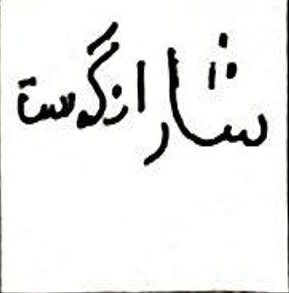 شارانگوست